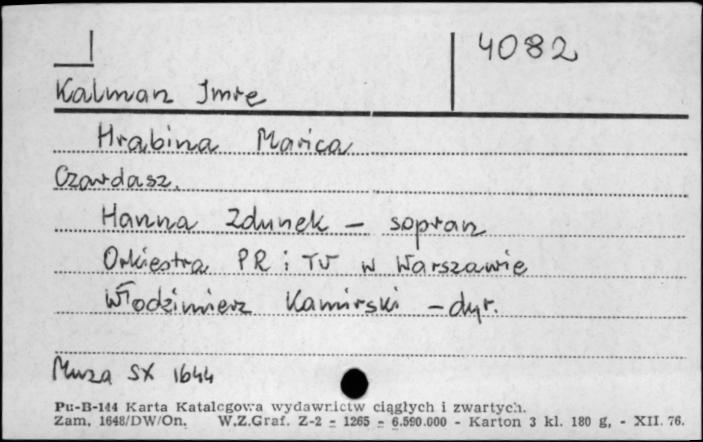 4082
Kalman Imre
Hrabina Marica
Czardasz.
Hanna Zdunek - sopran
Orkiestra PR i TV w Warszawie
Włodzimierz Kamirski - dyr.
Muza SX 1644
Pu-B-144 Karta Katalogowa wydawnictw ciągłych i zwartych.
Zam. 1648/DW/On. W.Z.Graf. Z-2 - 1265 - 6.590.000 - Karton 3 kl. 180 g, - XII. 76.